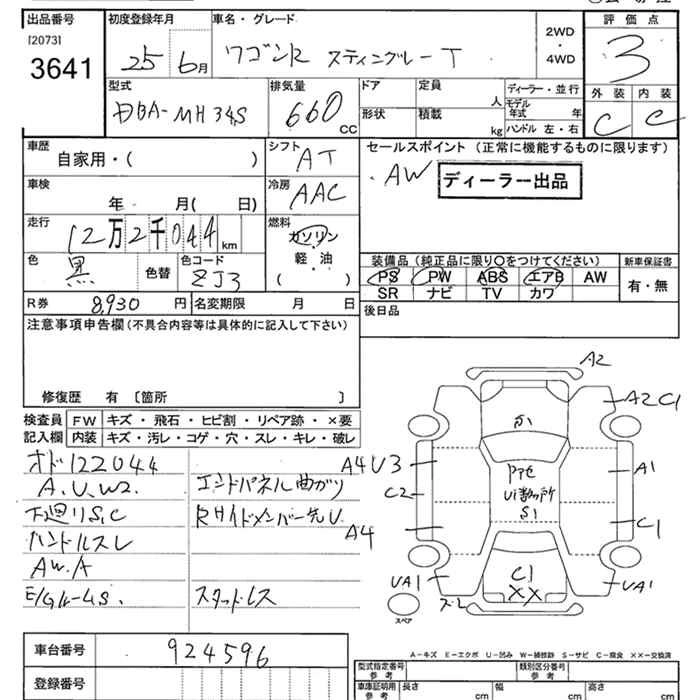 出品番号
[2073]
3641
初度登録年月
25 6月
車名・グレード
ワゴンR スティングレー T
2WD
・
4WD
評価点
3
外装 内装
C C
型式
DBA-MH34S
排気量
660 CC
ドア
定員 人
形状
積載 kg
ディーラー・並行
モデル年式 年
ハンドル 左・右
車歴
自家用・( )
シフト
AT
車検
年 月( 日)
冷房
AAC
走行
12万2千044km
燃料
ガソリン
軽・油
( )
色
黒
色替
色コード
ZJ3
R券 8,930円
名変期限 月 日
セールスポイント (正常に機能するものに限ります)
AW
ディーラー出品
装備品 (純正品に限り○をつけてください)
新車保証書
PS PW ABS エアB AW
SR ナビ TV カワ
有・無
後日品
注意事項申告欄 (不具合内容等は具体的に記入して下さい)
修復歴 有 〔箇所 〕
検査員記入欄
FW キズ・飛石・ヒビ割・リペア跡・×要
内装 キズ・汚レ・コゲ・穴・スレ・キレ・破レ
オド122044
A.U.W2.
下廻りS,C
ハンドルスレ
AW.A
エンドパネル曲がり
Rサイドメンバー先U
スタッドレス
A2
A2 C1
A4 U3
A1
C2
A4
C1
S1
C1
XX
UA1
UA1
スペア
車台番号 924596
登録番号
A-キズ E-エクボ U-凹み W-補修跡 S-サビ C-腐食 XX-交換済
型式指定番号 参考
類別区分番号 参考
車庫証明用 参考
長さ cm
幅 cm
高さ cm